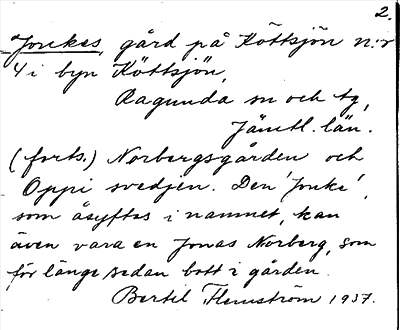 2.
Jonkes, gård på Köttsjön n:r
4 i byn Köttsjön,
Ragunda sn och tg,
Jämtl. län.
(forts.) Norbergsgården och
Oppi svedjen. Den 'Jonke',
som åsyftas i namnet, kan
även vara en Jonas Norberg, som
för länge sedan bott i gården.
Bertil Flemström 1937.